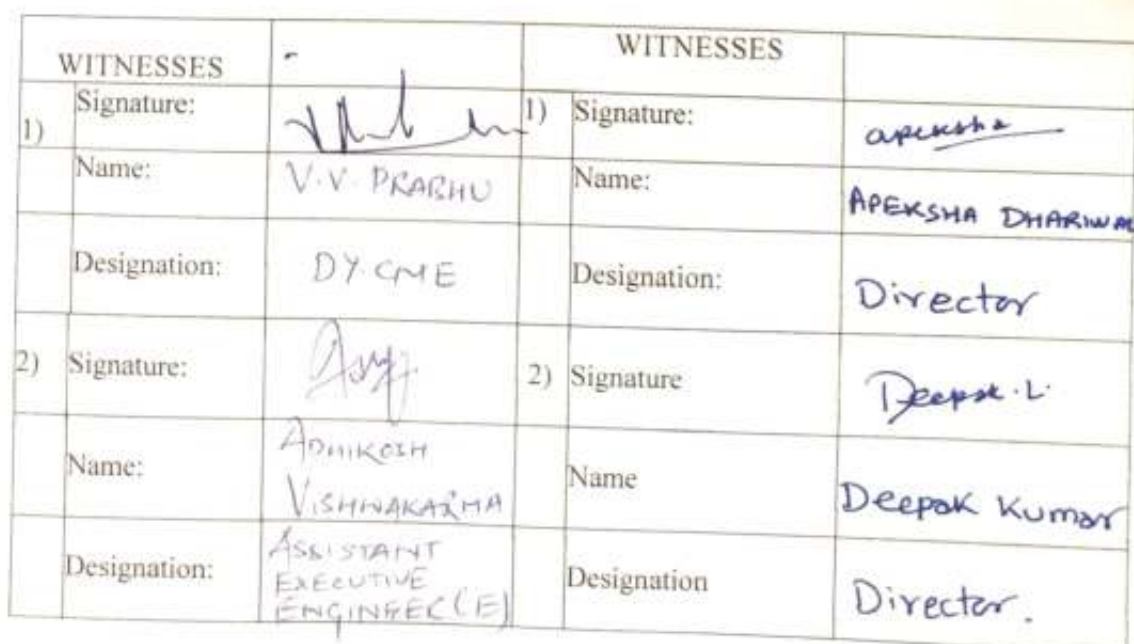 WITNESSES WITNESSES
1) Signature: 1) Signature: apeksha
Name: V.V. PRABHU Name: APEKSHA DHARIWAL
Designation: DY. CME Designation: Director
2) Signature: 2) Signature Deepak.L.
Name: VISHWAKARMA Name Deepak Kumar
Designation: ASSISTANT
EXECUTIVE
ENGINEER (E) Designation Director.